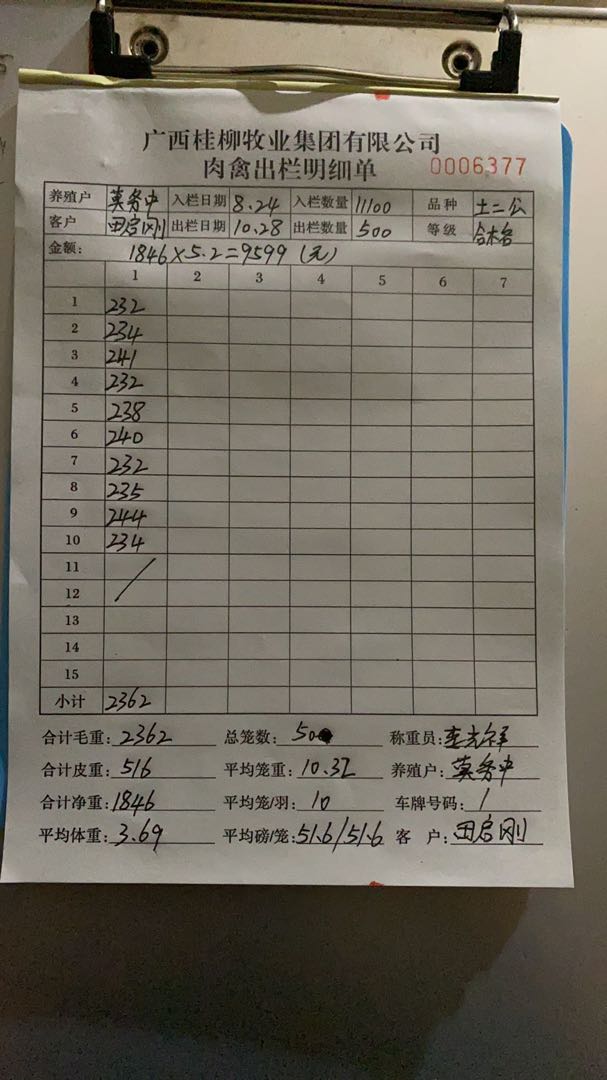 广西桂柳牧业集团有限公司
肉禽出栏明细单 0006377
养殖户 莫务中 入栏日期 8.24 入栏数量 11100 品种 土二公
客户 田启刚 出栏日期 10.28 出栏数量 500 等级 合格
金额: 1846×5.2=9599 (元)
1 2 3 4 5 6 7
1 232
2 234
3 241
4 232
5 238
6 240
7 232
8 235
9 244
10 234
11 /
12
13
14
15
小计 2362
合计毛重: 2362 总笼数: 50 称重员:
合计皮重: 516 平均笼重: 10.32 养殖户: 莫务中
合计净重: 1846 平均笼/羽: 10 车牌号码: 1
平均体重: 3.69 平均磅/笼: 51.6/51.6 客 户: 田启刚